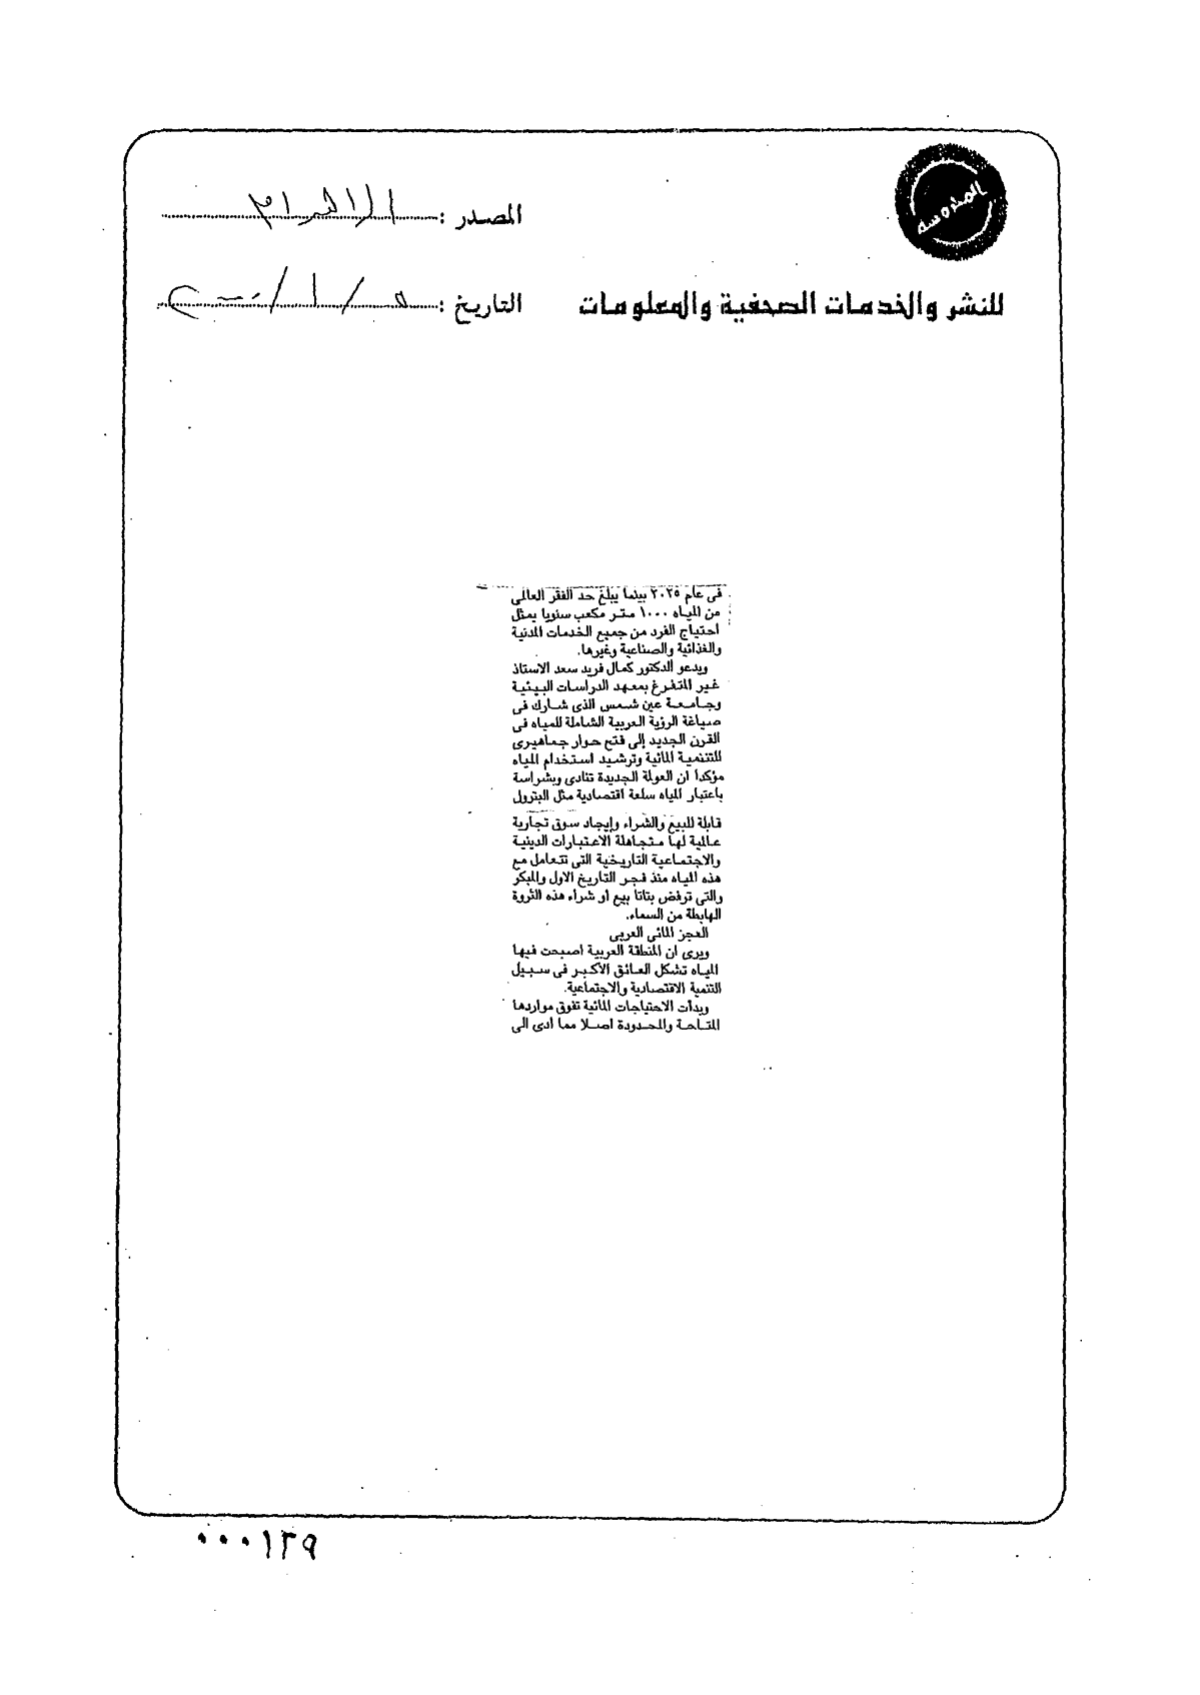 المحروسة
المصدر : الاهرام
للنشر والخدمات الصحفية والمعلومات
التاريخ : ٥ / ١ / ٢٠٠٠
فى عام ٢٠٢٥ بينما يبلغ حد الفقر العالمى
من المياه ١٠٠٠ متر مكعب سنويا يمثل
احتياج الفرد من جميع الخدمات المدنية
والغذائية والصناعية وغيرها.
ويدعو الدكتور كمال فريد سعد الاستاذ
غير المتفرغ بمعهد الدراسات البيئية
وجامعة عين شمس الذى شارك فى
صياغة الرؤية العربية الشاملة للمياه فى
القرن الجديد إلى فتح حوار جماهيرى
للتنمية المائية وترشيد استخدام المياه
مؤكدا ان العولمة الجديدة تنادى وبشراسة
باعتبار المياه سلعة اقتصادية مثل البترول
قابلة للبيع والشراء وإيجاد سوق تجارية
عالمية لها متجاهلة الاعتبارات الدينية
والاجتماعية التاريخية التى تتعامل مع
هذه المياه منذ فجر التاريخ الاول والمبكر
والتى ترفض بتاتا بيع او شراء هذه الثروة
الهابطة من السماء.
العجز المائى العربى
ويرى ان المنطقة العربية اصبحت فيها
المياه تشكل العائق الأكبر فى سبيل
التنمية الاقتصادية والاجتماعية.
وبدأت الاحتياجات المائية تفوق مواردها
المتاحة والمحدودة اصلا مما أدى الى
٠٠٠١٢٩